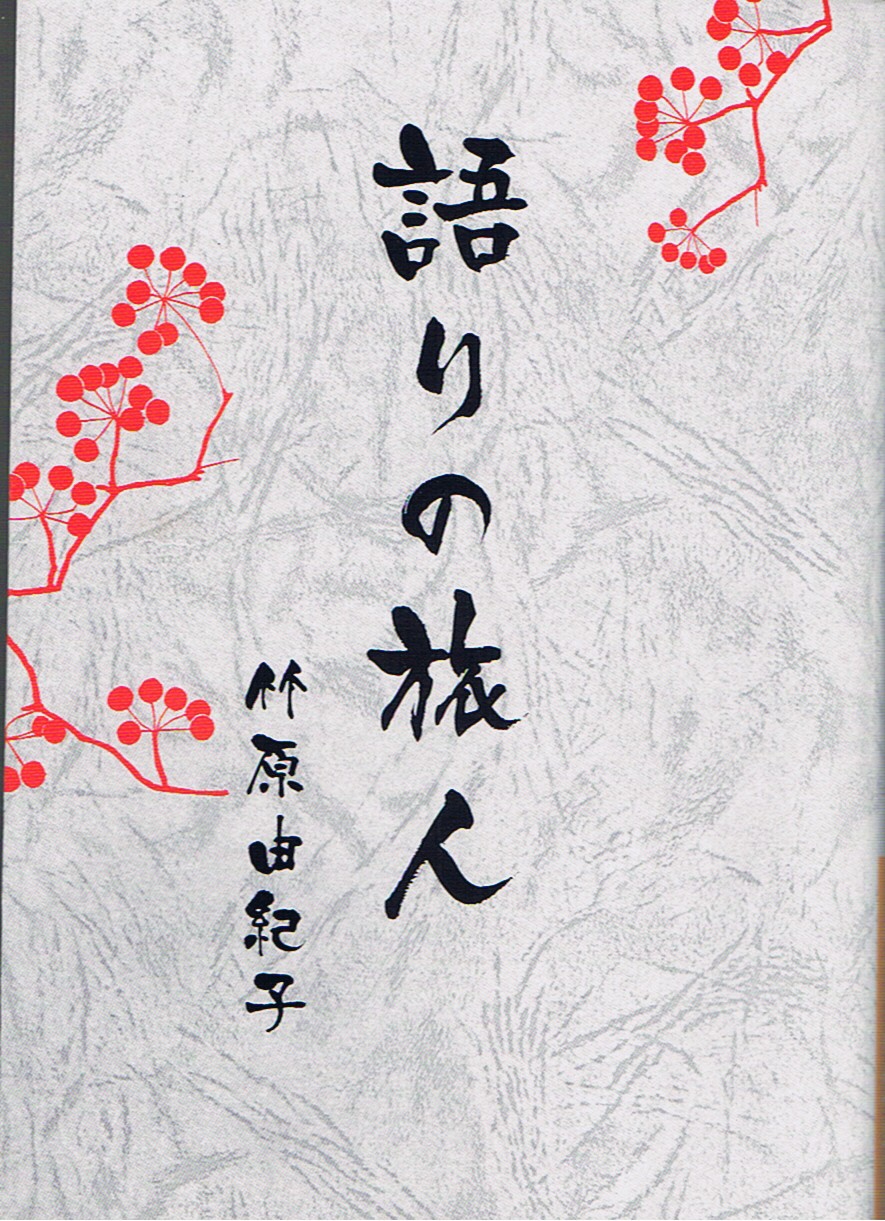 語りの旅人
竹原由紀子